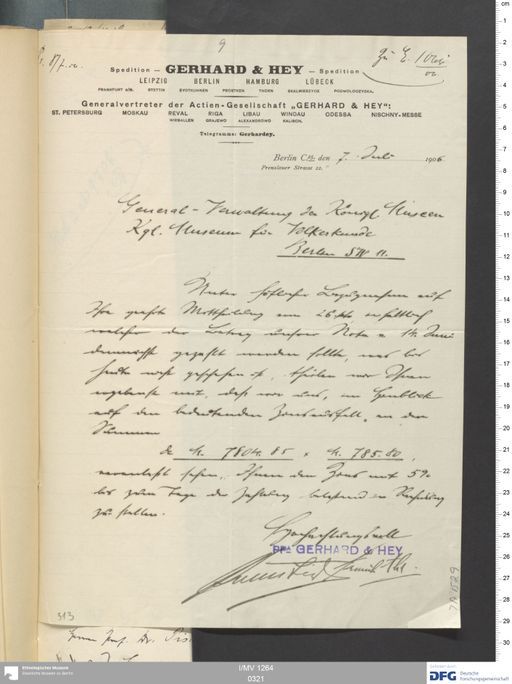 9
Spedition — GERHARD & HEY — Spedition
LEIPZIG BERLIN HAMBURG LÜBECK
FRANKFURT a/M. STETTIN EYDTKUHNEN PROSTKEN THORN SKALMIERZYCE PODWOLOCZYSKA.
Generalvertreter der Actien-Gesellschaft „GERHARD & HEY":
ST. PETERSBURG MOSKAU REVAL RIGA LIBAU WINDAU ODESSA NISCHNY-MESSE
WIRBALLEN GRAJEWO ALEXANDROWO KALISCH.
Telegramme: Gerhardey.
Berlin C. den 7. Juli 1906
Prenzlauer Strasse
General-Verwaltung der Königl Museen
Kgl. Museum für Völkerkunde
Berlin SW 11.
Unter höflicher Bezugnahme auf
Ihre geehrte Mittheilung vom 26.
welcher der Betrag unserer Nota v. 14. Juni
demnächst gezahlt werden sollte, was bis
heute nicht geschehen ist, theilen wir Ihnen
ergebenst mit, daß wir uns, im Hinblick
auf den bedeutenden Zinsausfall, an den
Summen
de M. 7804.85 M. 785.80,
veranlaßt sehen, Ihnen den Zins mit 5%
bis zum Tage der Zahlung in Rechnung
zu stellen.
Hochachtungsvoll
PPA GERHARD & HEY
313
Herrn Prof. Dr.
Ethnologisches Museum
Staatliche Museen zu Berlin
I/MV 1264
0321
DFG Deutsche
Forschungsgemeinschaft
cm
1
2
3
4
5
6
7
8
9
10
11
12
13
14
15
16
17
18
19
20
21
22
23
24
25
26
27
28
29
30